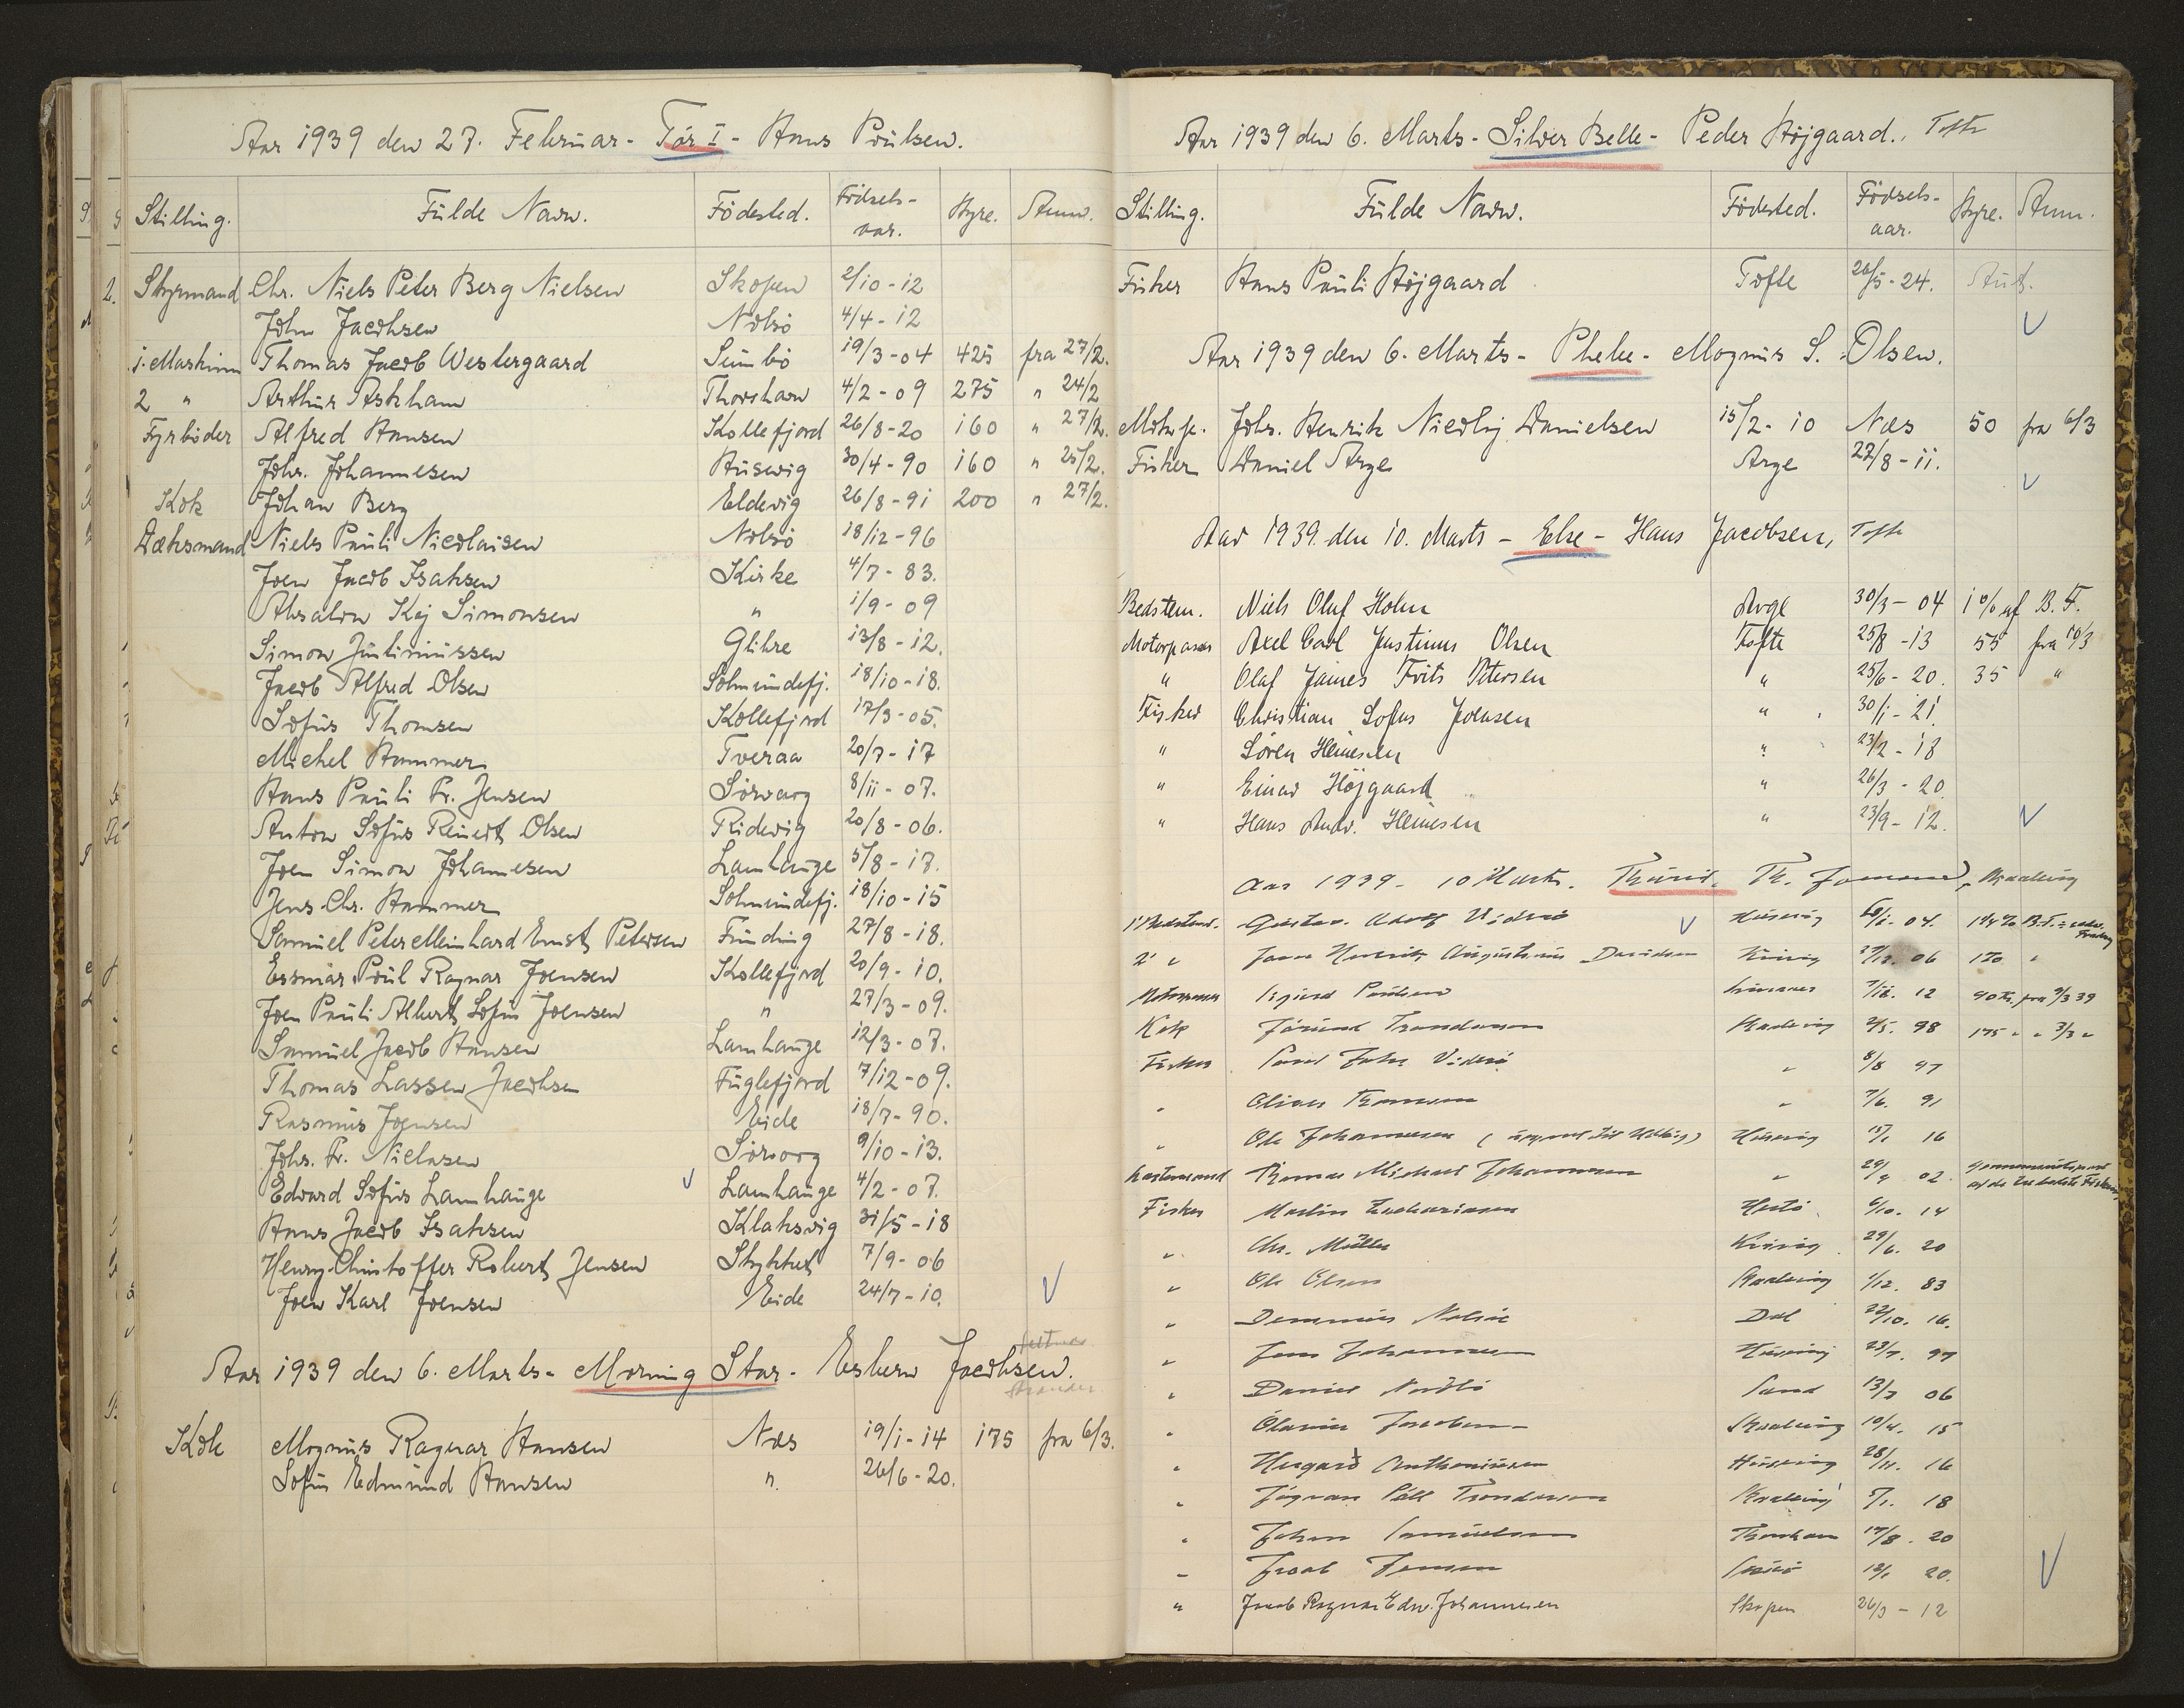 Aar 1939 den 27. Februar - Tór I - Hans Poulsen.
Stilling. Fulde Navn. Födested. Födsels-aar. Hyre. Anm.
2. Styrmand Chr. Niels Peter Berg Nielsen Skopen 2/10-12
John Jacobsen Nolsö 4/4-12
1. Maskinm Thomas Jacob Westergaard Sumbö 19/3-04 425 fra 27/2.
2 " Arthur Askham Thorshavn 4/2-09 275 " 24/2
Fyrböder Alfred Hansen Kollefjord 26/8-20 160 " 27/2.
Johs. Johannesen Husevig 30/4-90 160 " 25/2.
Kok Johan Berg Eldevig 26/8-91 200 " 27/2.
Dæksmand Niels Pauli Nicolaisen Nolsö 18/12-96
Joen Jacob Isaksen Kirke 4/7-83.
Absalon Kaj Simonsen " 1/9-09
Simon Justinussen Glibre 13/8-12.
Jacob Alfred Olsen Solmundefj. 18/10-18.
Sofus Thomsen Kollefjord 17/3-05.
Michel Hammer Tveraa 20/7-17
Hans Pauli Fr. Jensen Sörvaag 8/11-07.
Anton Sofus Reinert Olsen Ridevig 20/8-06.
Joen Simon Johannesen Lamhauge 5/8-17.
Jens Chr. Hammer Solmundefj. 18/10-15
Samuel Peter Meinhard Ernst Petersen Funding 27/8-18.
Essmar Poul Ragnar Joensen Kollefjord 20/9-10.
Joen Pauli Albert Sofus Joensen " 27/3-09.
Samuel Jacob Hansen Lamhauge 12/3-07.
Thomas Lassen Jacobsen Fuglefjord 7/12-09.
Rasmus Joensen Eide 18/7-90.
Johs. Fr. Nielasen Sörvaag 9/10-13.
Edvard Sofus Lamhauge Lamhauge 4/2-07.
Hans Jacob Isaksen Klaksvig 31/5-18
Henry Christoffer Robert Jensen Stykket 7/9-06
Joen Karl Joensen Eide 24/7-10.
Aar 1939 den 6. Marts - Morning Star - Esbern Jacobsen.
Kok Magnus Ragnar Hansen Næs 19/1-14 175 fra 6/3.
Sofus Edmund Hansen " 26/6-20.
Aar 1939 den 6. Marts - Silver Belle - Peder Höjgaard. Tofte
Stilling. Fulde Navn. Födested. Födsels-aar. Hyre. Anm.
Fisker Hans Pauli Höjgaard Tofte 26/5-24.
Aar 1939 den 6. Marts - Phebe - Magnus S. Olsen.
Motorp. Johs. Henrik Nicolaj Danielsen 15/2-10 Næs 50 fra 6/3
Fisker Daniel Arge Arge 27/8-11.
Aar 1939. den 10. Marts - Else - Hans Jacobsen, Tofte
Bedstem. Niels Oluf Holm Arge 30/3-04 1% af B.F.
Motorpasser Axel Carl Justinus Olsen Tofte 25/8-13 55 fra 10/3
" Oluf James Frits Petersen " 25/6-20. 35 "
Fisker Christian Sofus Joensen " 30/1-21.
" Sören Heinesen " 23/2-18
" Einar Höjgaard " 26/3-20.
" Hans Andr. Heinesen " 23/9-12.
Aar 1939 - 10 Marts. Thurid. Th. Joensen, Kvalvig
1' Bedstem. Gustav Adolf Viderö Husevig 04.
2' " Jens Henrik Augustinus Davidsen 06 "
Motorpasser Sigurd Poulsen 12 90 Kr. fra 9/3 39
Kok Jörund Trondesen 2/5. 98 175 " " 3/3 "
Fisker Poul Johs Viderö " 8/8 97
" Oliver Thomsen " 7/6. 91
" Ole Johannesen Husevig 15/1 16
Thomas Michael Johannesen " 02.
Fisker Martin Zachariasen Hestö 6/10. 14
" Chr. Müller 29/6. 20
" Ole Olsen 1/12. 83
" Demmus Nolsöe Dal 22/10. 16.
" Jens Johannesen Husevig 23/7. 97
" Daniel Nordlö Sand 13/7 06
" Olavur Jacobsen 10/4. 15
" Husevig 28/11. 16
" 5/1. 18
" Johan Samuelsen Thorshavn 17/8. 20
" Jacob Jensen 12/1 20.
" Jacob Ragnar Edv. Johannesen Skopen 26/3-12